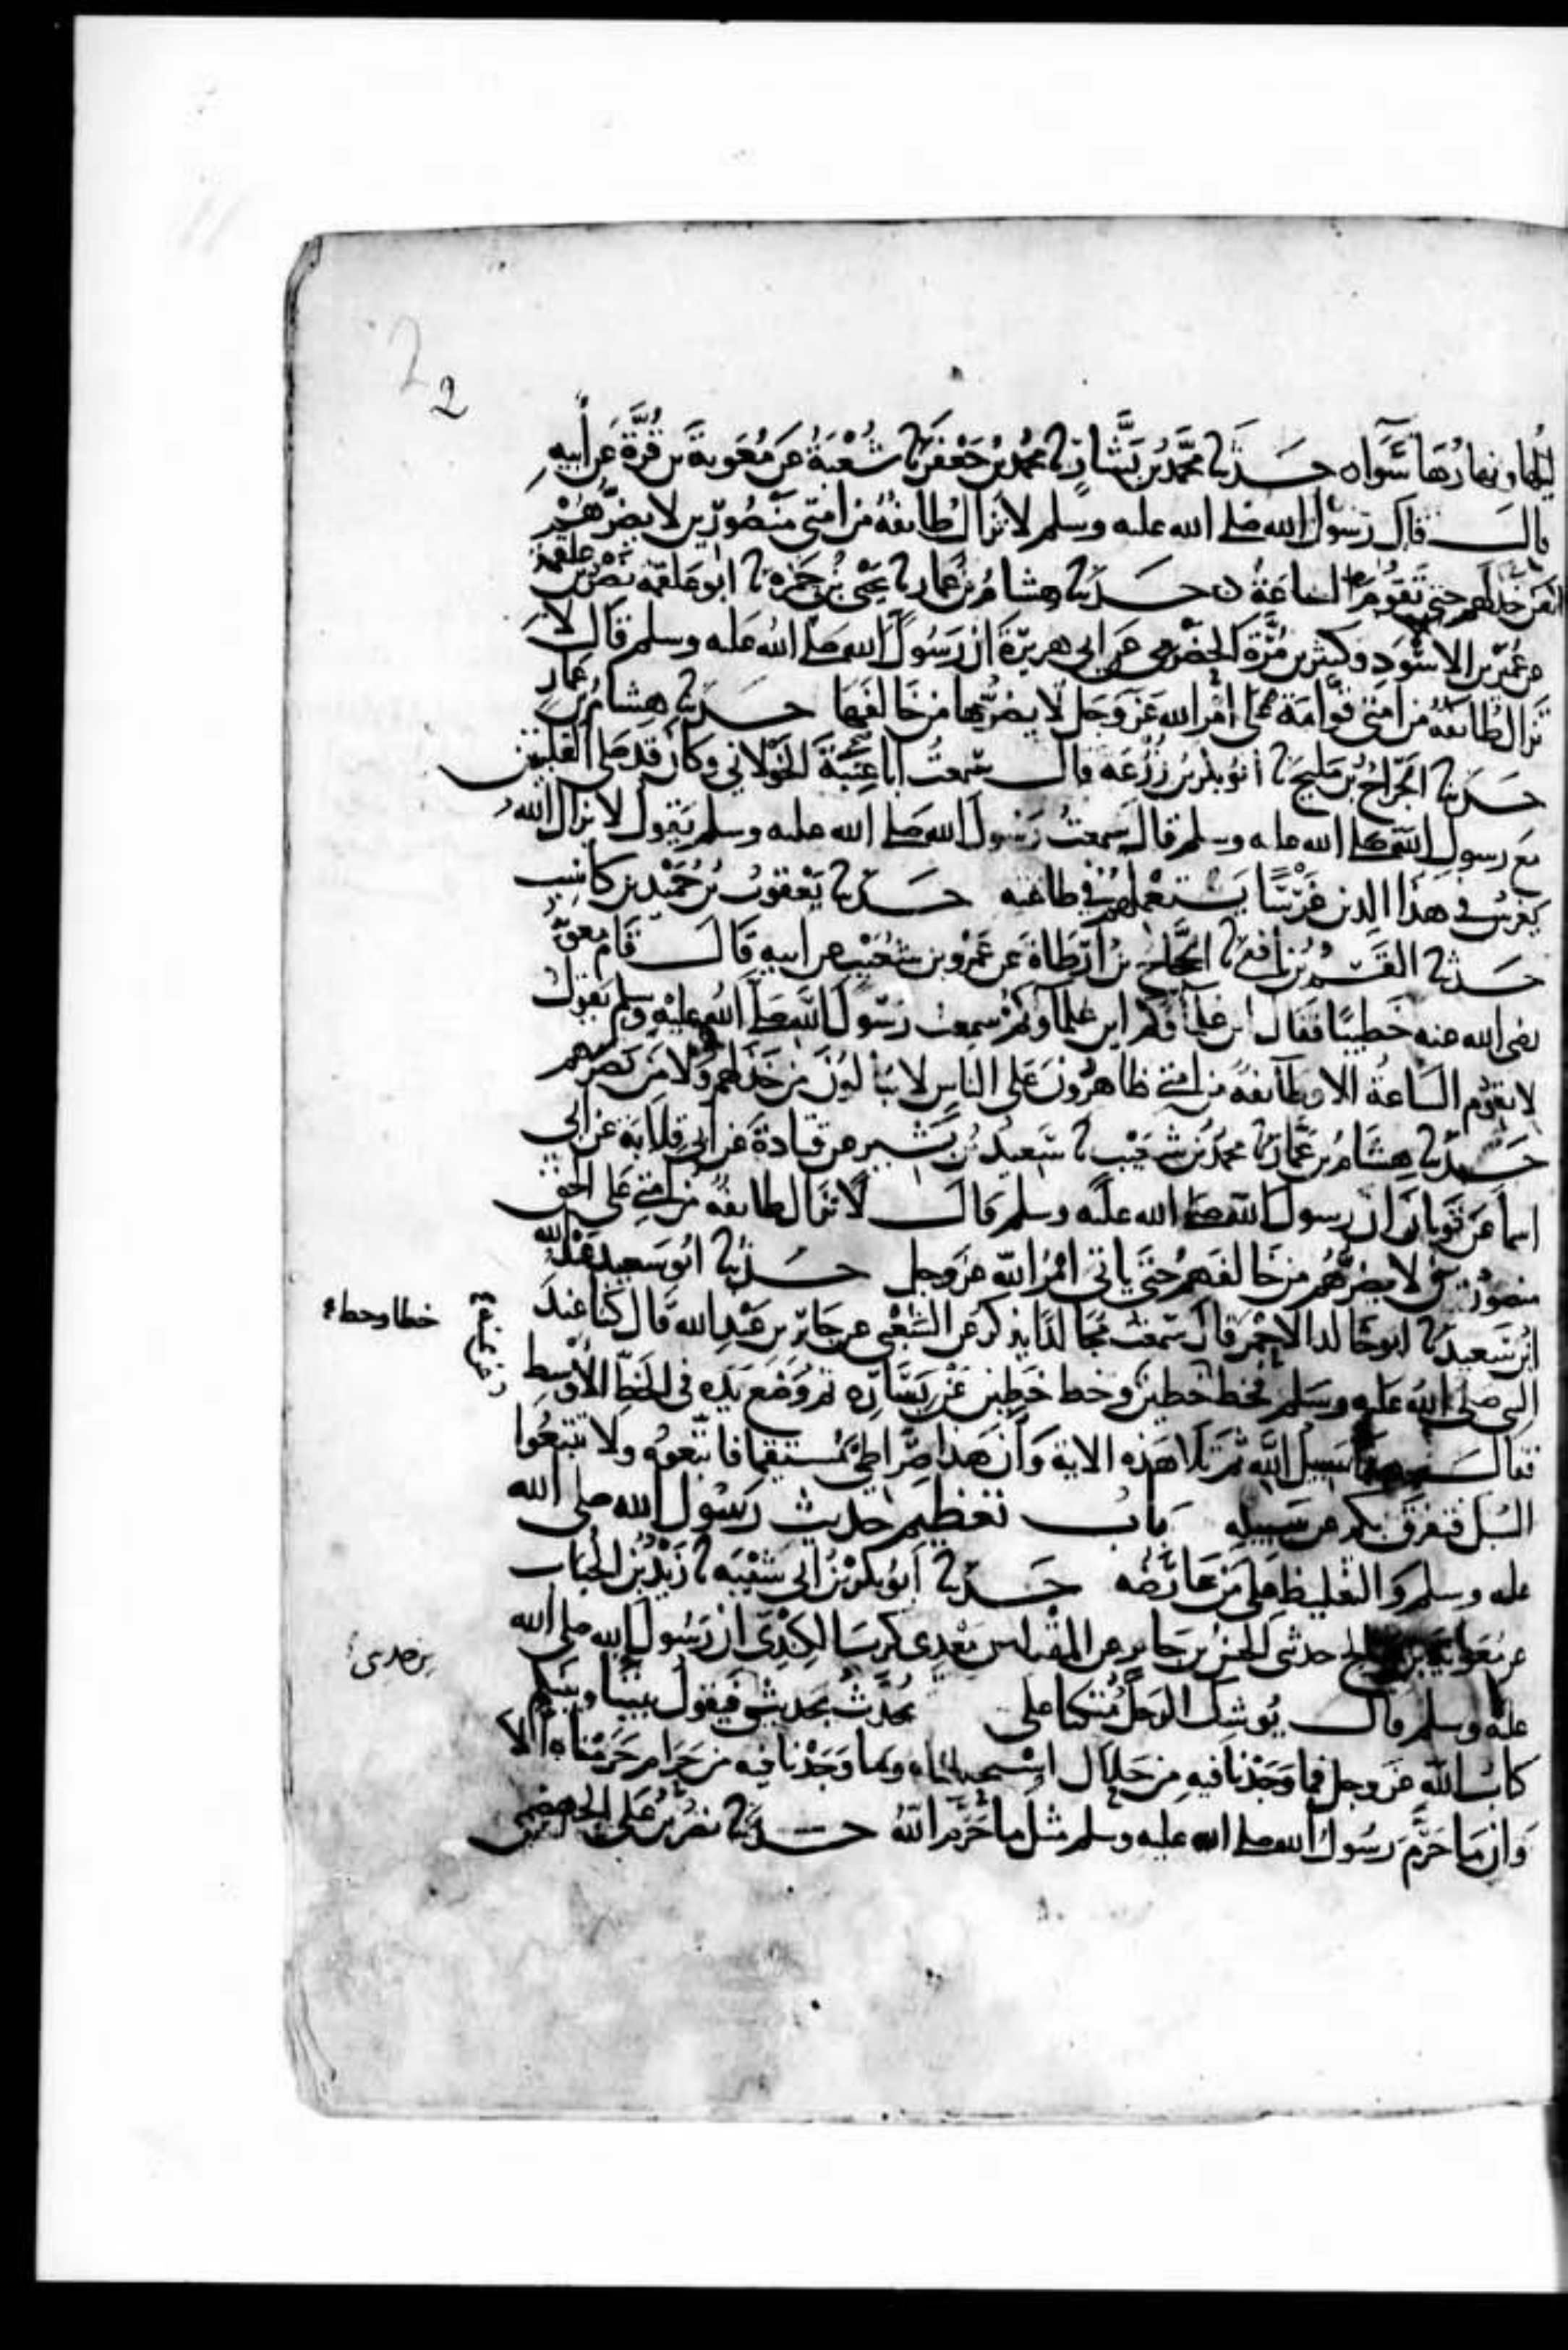 2
2
ليلها ونهارها سواه حدثنا محمد بن بشار ثنا محمد بن جعفر ثنا شعبة عن معوية بن قرة عن أبيه
قال قال رسول الله صلى الله عليه وسلم لا تزال طائفة من امتي منصورين لا يضرهم
من خذلهم حتى تقوم الساعة حدثنا هشام بن عمار ثنا يحيى بن حمزة ثنا ابو علقمة نصر بن علقمة
عن عمير بن الاسود وكثير بن مرة الحضرمي عن ابي هريرة ان رسول الله صلى الله عليه وسلم قال لا
تزال طائفة من امتي قوامة على امر الله عز وجل لا يضرها من خالفها حدثنا هشام بن عمار
حدثنا الجراح بن مليح ثنا بكر بن زرعة قال سمعت ابا عنبة الخولاني وكان قد صلى القبلتين
مع رسول الله صلى الله عليه وسلم قال سمعت رسول الله صلى الله عليه وسلم يقول لا يزال الله
يغرس في هذا الدين غرسا يستعملهم في طاعته حدثنا يعقوب بن حميد بن كاسب
حدثنا القسم بن نافع ثنا الحجاج بن ارطاة عن عمرو بن شعيب عن ابيه قال قام معوية
رضي الله عنه خطيبا فقال اين علماؤكم اين علماؤكم سمعت رسول الله صلى الله عليه وسلم يقول
لا تقوم الساعة الا وطائفة من امتي ظاهرون على الناس لا يبالون من خذلهم ولا من نصرهم
حدثنا هشام بن عمار ثنا محمد بن شعيب ثنا سعيد بن بشير عن قتادة عن ابي قلابة عن ابي
اسما عن ثوبان ان رسول الله صلى الله عليه وسلم قال لا تزال طائفة من امتي على الحق
منصورين لا يضرهم من خالفهم حتى ياتي امر الله عز وجل حدثنا ابو سعيد عبد الله
ابن سعيد ثنا ابو خالد الاحمر قال سمعت مجالدا يذكر عن الشعبي عن جابر بن عبد الله قال كنا عند
خطا وخط
النبي صلى الله عليه وسلم فخط خطين وخط خطين عن يساره ثم وضع يده في الخط الاوسط
فقال هذا سبيل الله ثم تلا هذه الاية وأن هذا صراطي مستقيما فاتبعوه ولا تتبعوا
السبل فتفرق بكم عن سبيله باب تعظيم حديث رسول الله صلى الله
عليه وسلم والتغليظ على من عارضه حدثنا ابو بكر بن ابي شيبة ثنا زيد بن الحباب
عن معوية بن صالح حدثني الحسن بن جابر عن المقدام بن معدي كرب الكندي ان رسول الله صلى الله
عليه وسلم قال يوشك الرجل متكئا على يحدث بحديثي فيقول بيننا وبينكم
كتاب الله عز وجل فما وجدنا فيه من حلال استحللناه وما وجدنا فيه من حرام حرمناه الا
وان ما حرم رسول الله صلى الله عليه وسلم مثل ما حرم الله حدثنا نصر بن علي الجهضمي